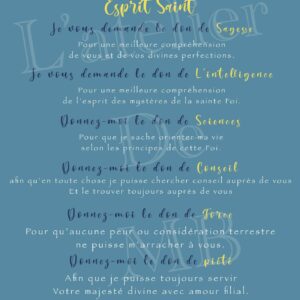 Esprit Saint
Je vous demande le don de Sagesse
Pour une meilleure compréhension
de vous et de vos divines perfections.
Je vous demande le don de L'intelligence
Pour une meilleure compréhension
de l'esprit des mystères de la sainte Foi.
Donnez-moi le don de Sciences
Pour que je sache orienter ma vie
selon les principes de cette Foi.
Donnez-moi le don de Conseil
afin qu'en toute chose je puisse chercher conseil auprès de vous
Et le trouver toujours auprès de vous
Donnez-moi le don de Force
Pour qu'aucune peur ou considération terrestre
ne puisse m'arracher à vous.
Donnez-moi le don de piété
Afin que je puisse toujours servir
Votre majesté divine avec amour filial.
L'Atelier
De
MB